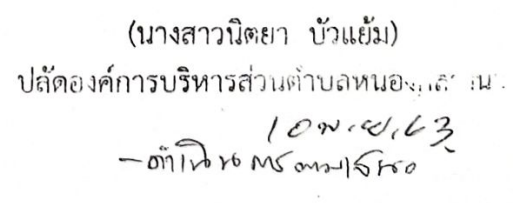 (นางสาวนิตยา บัวแย้ม)
ปลัดองค์การบริหารส่วนตำบลหนอง
10 พ.ย. 63
-ดำเนินการตามเสนอ